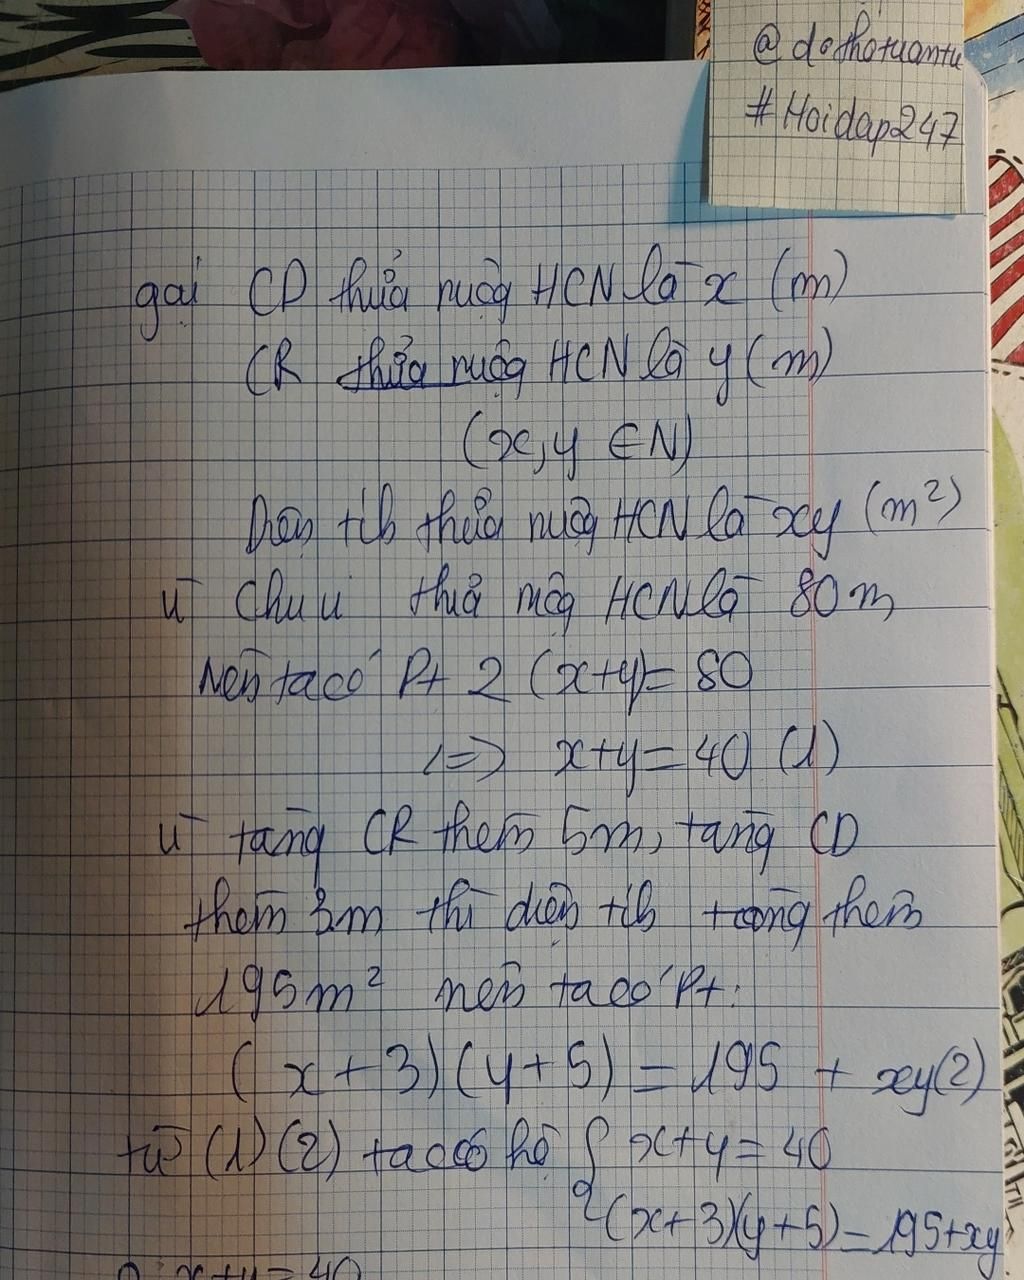 @dothotuantu
#Hoidap247
gọi CD thửa ruộg HCN là x (m)
CR thửa ruộg HCN là y (m)
(x,y ∈ N)
Diện tíh thửa ruộg HCN là xy (m²)
vì Chu vi thửa ruộg HCN là 80m
Nên ta có Pt 2 (x+y) = 80
<=> x+y = 40 (1)
vì tăng CR thêm 5m, tăng CD
thêm 3m thì diện tíh tăng thêm
195m² nên ta có Pt:
(x+3)(y+5) = 195 + xy (2)
từ (1) (2) ta có hệ { x+y = 40
(x+3)(y+5) = 195+xy
x+y = 40